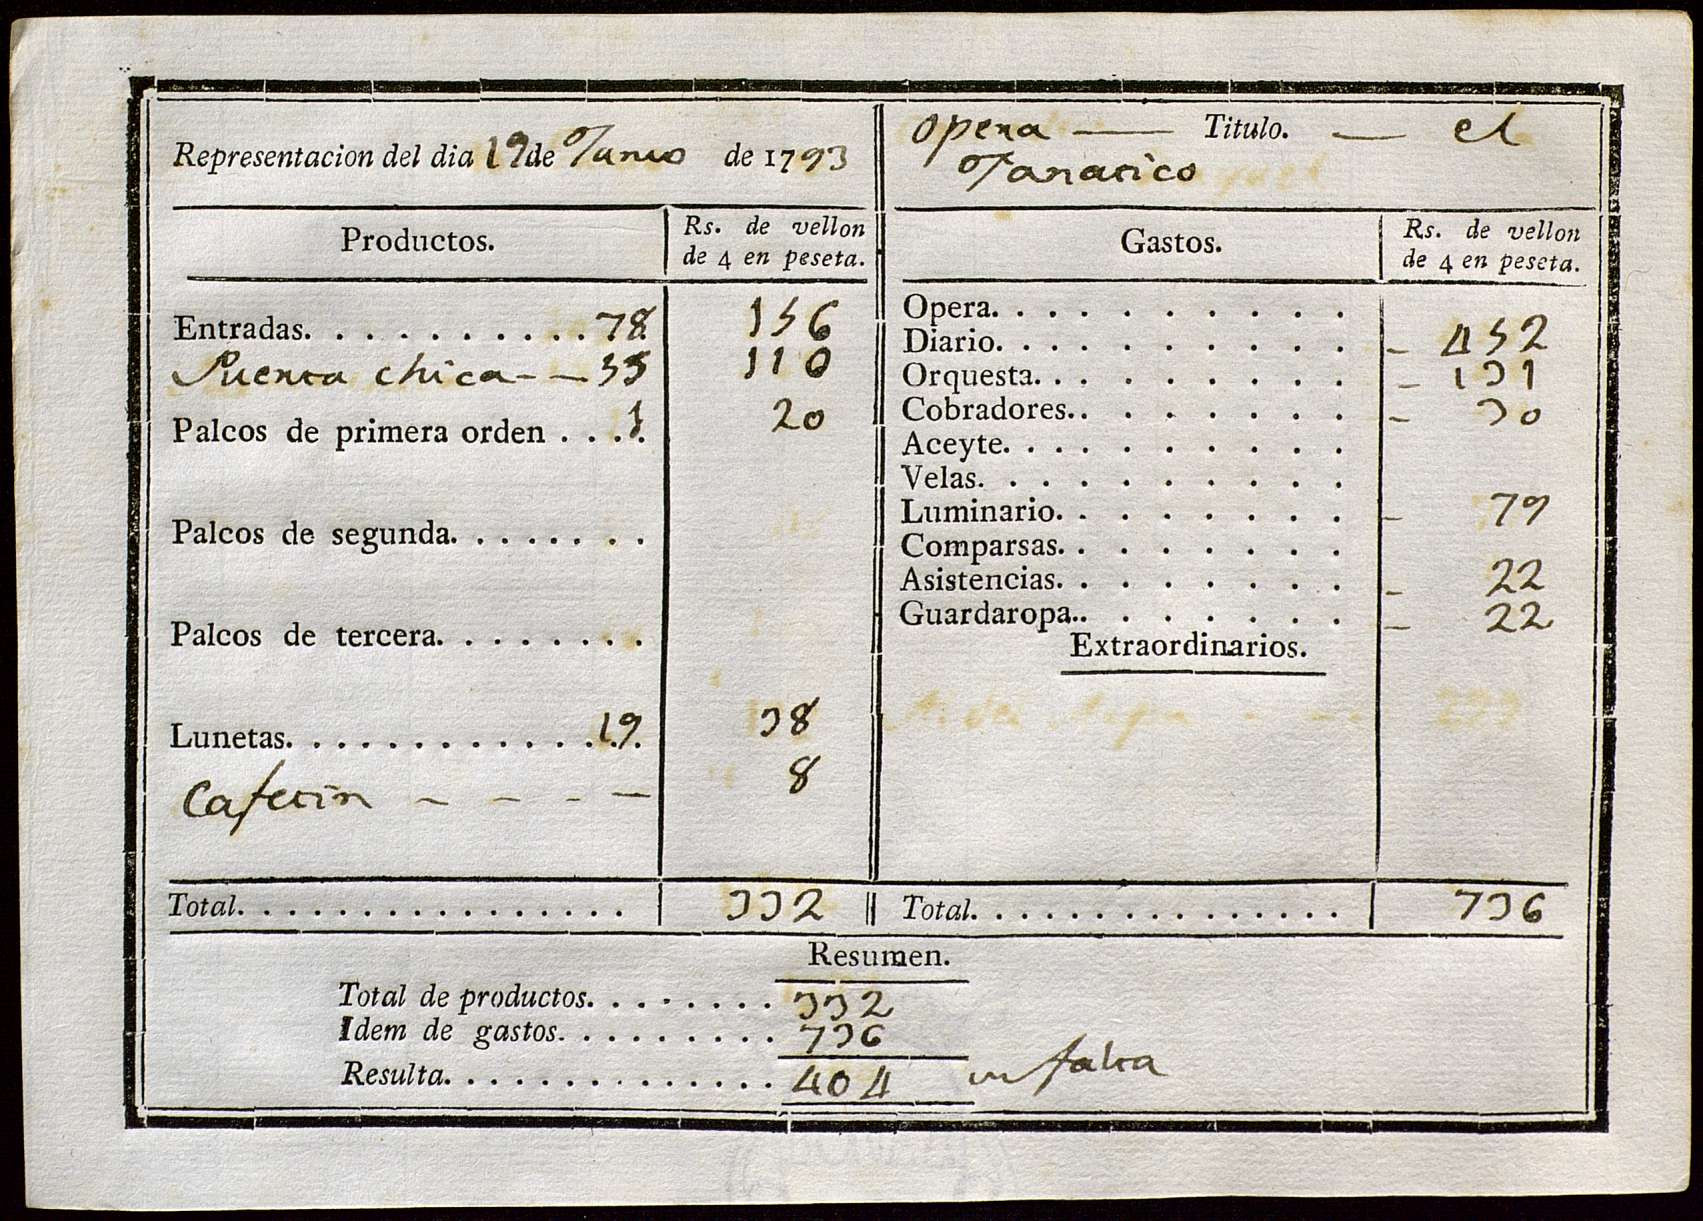 Representacion del dia 19 de Junio de 1793
Opera — Titulo. — el
Fanatico
Productos.
Rs. de vellon
de 4 en peseta.
Entradas. . . . . . . . . . 78 156
Puerta chica - - 55 110
Palcos de primera orden . . . 1. 20
Palcos de segunda. . . . . . . .
Palcos de tercera. . . . . . . .
Lunetas. . . . . . . . . . . . . 19. 38
Cafetin - - - - 8
Total. . . . . . . . . . . . . . . . 332
Gastos.
Rs. de vellon
de 4 en peseta.
Opera. . . . . . . . . . .
Diario. . . . . . . . . . . - 452
Orquesta. . . . . . . . . - 131
Cobradores.. . . . . . . . - 30
Aceyte. . . . . . . . . . .
Velas. . . . . . . . . . .
Luminario. . . . . . . . . - 79
Comparsas. . . . . . . .
Asistencias. . . . . . . . - 22
Guardaropa.. . . . . . . . - 22
Extraordinarios.
Total. . . . . . . . . . . . . . . 736
Resumen.
Total de productos. . . . . . . . 332
Idem de gastos. . . . . . . . . 736
Resulta. . . . . . . . . . . . . . 404 en falta